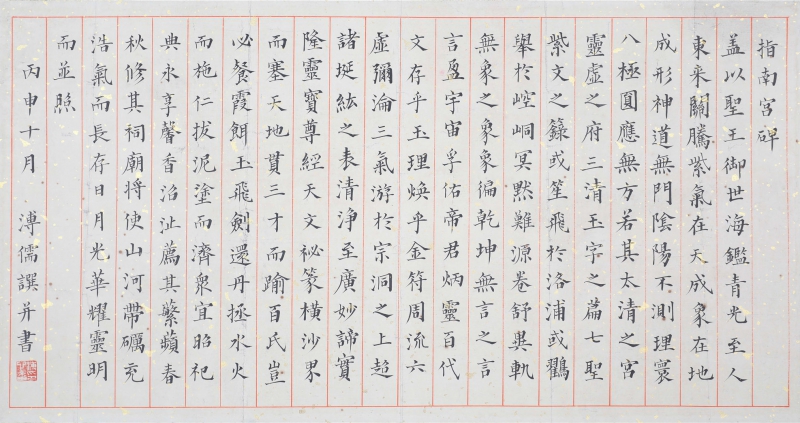 指南宮碑
蓋以聖王御世海鑑青光至人
東來關騰紫氣在天成象在地
成形神道無門陰陽不測理寰
八極圓應無方若其太清之宮
靈虛之府三清玉字之篇七聖
紫文之籙或笙飛於洛浦或鸖
舉於崆峒冥默難源卷舒異軌
無象之象象徧乾坤無言之言
言盈宇宙孚佑帝君炳靈百代
文存乎玉理煥乎金符周流六
虛彌淪三氣游於宗洞之上超
諸埏紘之表清淨至廣妙諦實
隆靈寶尊經天文祕篆橫沙界
而塞天地貫三才而踰百氏豈
必餐霞餌玉飛劍還丹拯水火
而施仁拔泥塗而濟眾宜昭祀
典永享馨香沼沚薦其蘩蘋春
秋修其祠廟將使山河帶礪充
浩氣而長存日月光華耀靈明
而並照
丙申十月 溥儒譔并書